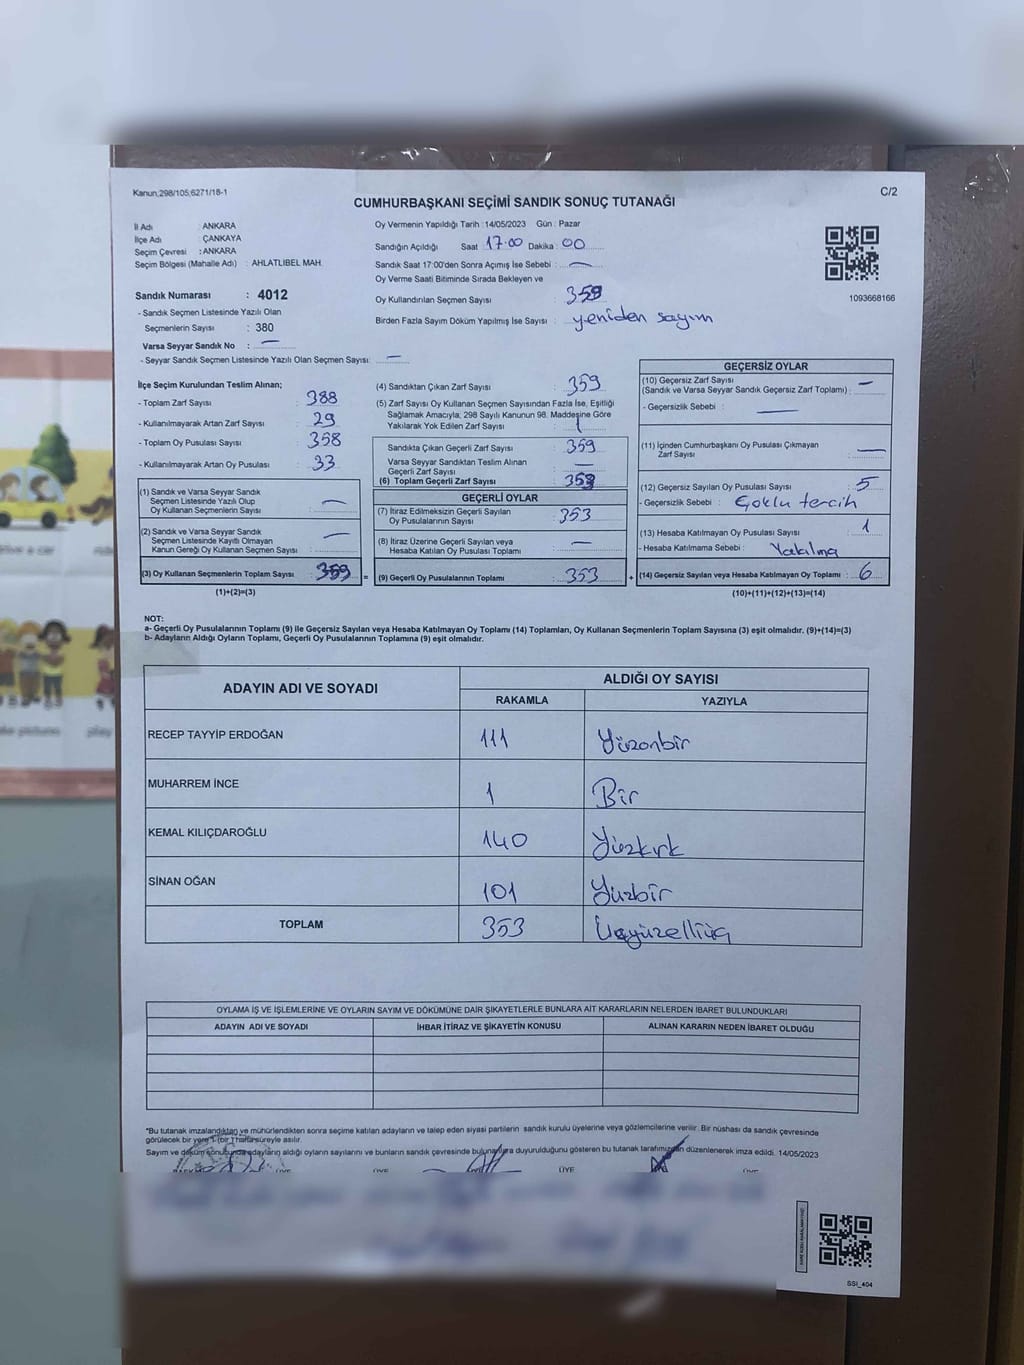 Kanun;298/105;6271/18-1
C/2
CUMHURBAŞKANI SEÇİMİ SANDIK SONUÇ TUTANAĞI
İl Adı : ANKARA
İlçe Adı : ÇANKAYA
Seçim Çevresi : ANKARA
Seçim Bölgesi (Mahalle Adı) : AHLATLIBEL MAH.
Sandık Numarası : 4012
- Sandık Seçmen Listesinde Yazılı Olan
Seçmenlerin Sayısı : 380
Varsa Seyyar Sandık No : —
- Seyyar Sandık Seçmen Listesinde Yazılı Olan Seçmen Sayısı: —
Oy Vermenin Yapıldığı Tarih : 14/05/2023 Gün : Pazar
Sandığın Açıldığı Saat 17.00 Dakika : 00
Sandık Saat 17:00'den Sonra Açımış İse Sebebi : —
Oy Verme Saati Bitiminde Sırada Bekleyen ve
Oy Kullandırılan Seçmen Sayısı : 359
Birden Fazla Sayım Döküm Yapılmış İse Sayısı : yeniden sayım
1093668166
İlçe Seçim Kurulundan Teslim Alınan;
- Toplam Zarf Sayısı : 388
- Kullanılmayarak Artan Zarf Sayısı : 29
- Toplam Oy Pusulası Sayısı : 358
- Kullanılmayarak Artan Oy Pusulası : 33
(1) Sandık ve Varsa Seyyar Sandık
Seçmen Listesinde Yazılı Olup
Oy Kullanan Seçmenlerin Sayısı : —
(2) Sandık ve Varsa Seyyar Sandık
Seçmen Listesinde Kayıtlı Olmayan
Kanun Gereği Oy Kullanan Seçmen Sayısı : —
(3) Oy Kullanan Seçmenlerin Toplam Sayısı : 359 =
(1)+(2)=(3)
(4) Sandıktan Çıkan Zarf Sayısı : 359
(5) Zarf Sayısı Oy Kullanan Seçmen Sayısından Fazla İse, Eşitliği
Sağlamak Amacıyla; 298 Sayılı Kanunun 98. Maddesine Göre
Yakılarak Yok Edilen Zarf Sayısı : 1
Sandıkta Çıkan Geçerli Zarf Sayısı : 359
Varsa Seyyar Sandıktan Teslim Alınan
Geçerli Zarf Sayısı : —
(6) Toplam Geçerli Zarf Sayısı : 359
GEÇERLİ OYLAR
(7) İtiraz Edilmeksizin Geçerli Sayılan
Oy Pusulalarının Sayısı : 353
(8) İtiraz Üzerine Geçerli Sayılan veya
Hesaba Katılan Oy Pusulası Toplamı : —
(9) Geçerli Oy Pusulalarının Toplamı : 353 +
GEÇERSİZ OYLAR
(10) Geçersiz Zarf Sayısı
(Sandık ve Varsa Seyyar Sandık Geçersiz Zarf Toplamı) : —
- Geçersizlik Sebebi : —
(11) İçinden Cumhurbaşkanı Oy Pusulası Çıkmayan
Zarf Sayısı : —
(12) Geçersiz Sayılan Oy Pusulası Sayısı : 5
- Geçersizlik Sebebi : Çoklu tercih
(13) Hesaba Katılmayan Oy Pusulası Sayısı : 1
- Hesaba Katılmama Sebebi : Yakılma
(14) Geçersiz Sayılan veya Hesaba Katılmayan Oy Toplamı : 6
(10)+(11)+(12)+(13)=(14)
NOT:
a- Geçerli Oy Pusulalarının Toplamı (9) ile Geçersiz Sayılan veya Hesaba Katılmayan Oy Toplamı (14) Toplamları, Oy Kullanan Seçmenlerin Toplam Sayısına (3) eşit olmalıdır. (9)+(14)=(3)
b- Adayların Aldığı Oyların Toplamı, Geçerli Oy Pusulalarının Toplamına (9) eşit olmalıdır.
ADAYIN ADI VE SOYADI
ALDIĞI OY SAYISI
RAKAMLA YAZIYLA
RECEP TAYYİP ERDOĞAN 111 Yüzonbir
MUHARREM İNCE 1 Bir
KEMAL KILIÇDAROĞLU 140 Yüzkırk
SİNAN OĞAN 101 Yüzbir
TOPLAM 353 Üçyüzelliüç
OYLAMA İŞ VE İŞLEMLERİNE VE OYLARIN SAYIM VE DÖKÜMÜNE DAİR ŞİKAYETLERLE BUNLARA AİT KARARLARIN NELERDEN İBARET BULUNDUKLARI
ADAYIN ADI VE SOYADI İHBAR İTİRAZ VE ŞİKAYETİN KONUSU ALINAN KARARIN NEDEN İBARET OLDUĞU
*Bu tutanak imzalandıktan ve mühürlendikten sonra seçime katılan adayların ve talep eden siyasi partilerin sandık kurulu üyelerine veya gözlemcilerine verilir. Bir nüshası da sandık çevresinde
görülecek bir yere 1 (bir) hafta süreyle asılır.
Sayım ve döküm sonucunda adayların aldığı oyların sayılarını ve bunların sandık çevresinde bulunanlara duyurulduğunu gösteren bu tutanak tarafımızdan düzenlenerek imza edildi. 14/05/2023
ÜYE ÜYE ÜYE ÜYE
SSI_404